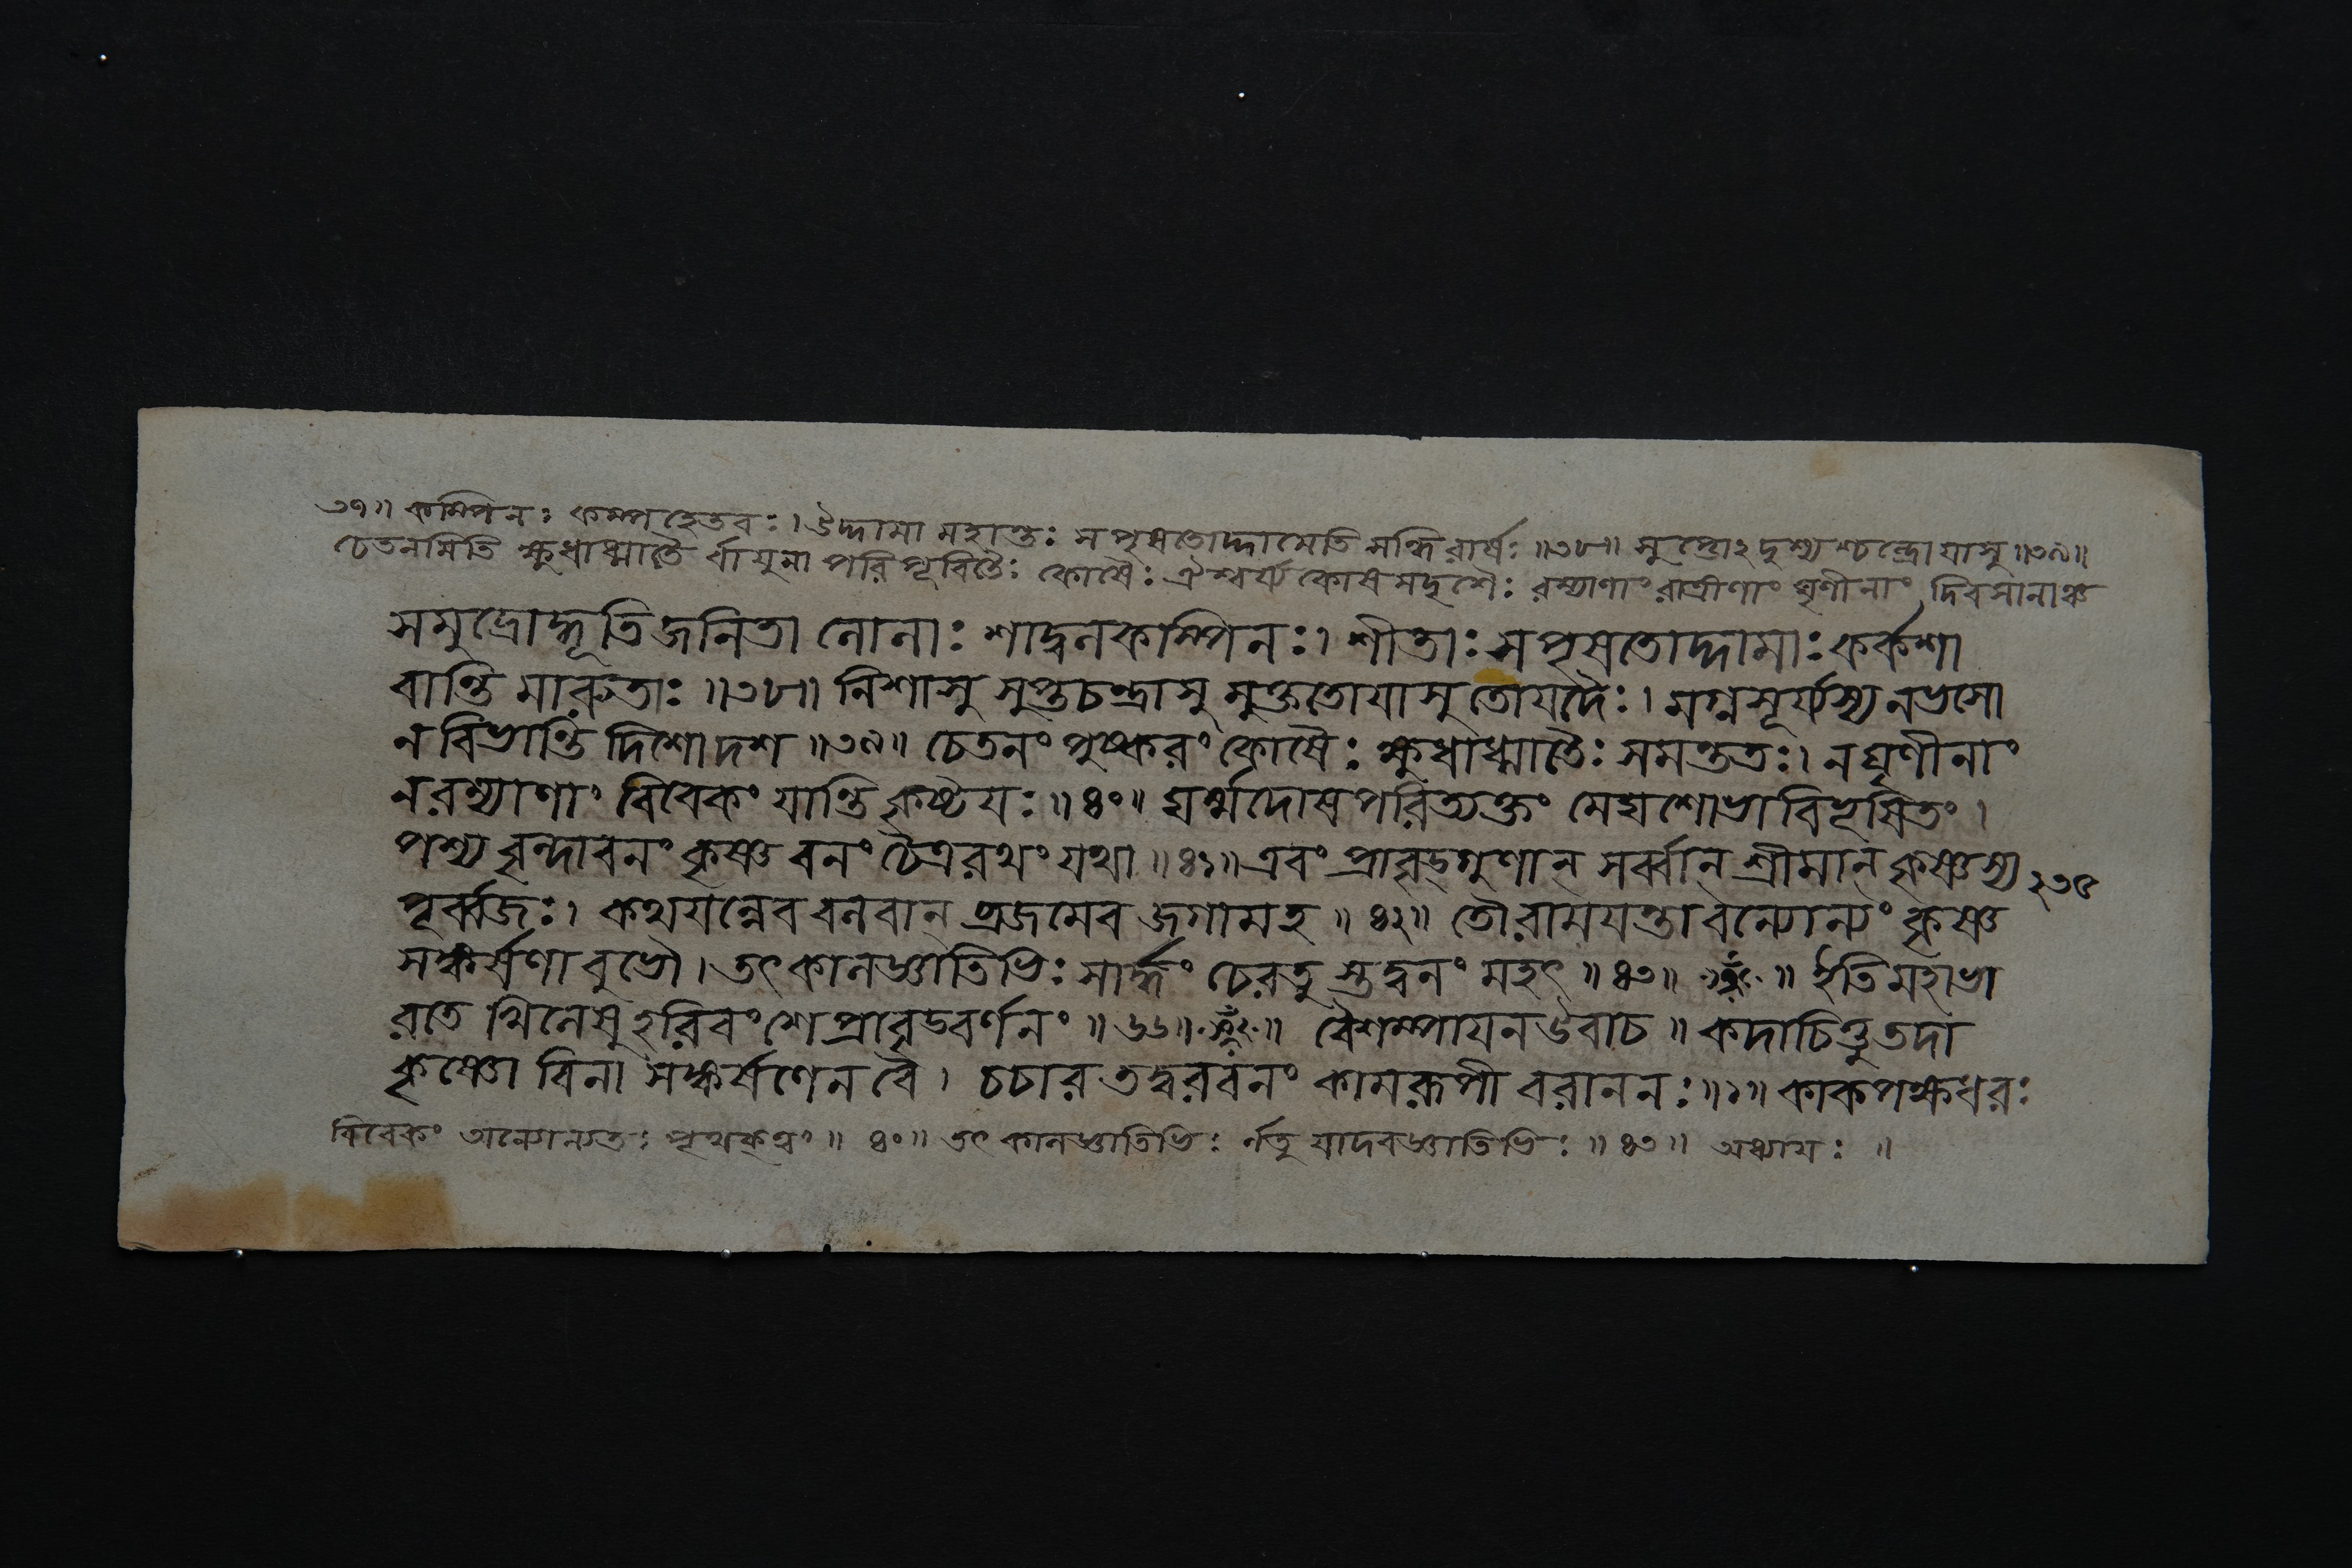 ৩৭॥ কম্পিনঃ কম্পহেতবঃ। উদ্দামা মহান্তঃ সপৃষতোদ্দামেতি সন্ধিরার্ষঃ ॥৩৮॥ সুপ্তোঽদৃশ্যশ্চন্দ্রো যাসু ॥৩৯॥
চেতনমিতি ক্ষুধাধ্মাতৈ র্বায়ুনা পরিপূরিতৈঃ কোষৈঃ ঐশ্বর্য্য কোষসদৃশৈঃ রম্যাণাং রাত্রীণাং ঘৃণীনাং দিবসানাঞ্চ
সমুদ্রোদ্ভূতিজনিতা লোলাঃ শাদ্বলকম্পিনঃ। শীতাঃ সপৃষতোদ্দামাঃ কর্কশা
বান্তি মারুতাঃ ॥৩৮॥ নিশাসু সুপ্তচন্দ্রাসু মুক্ততোয়াসু তোয়দৈঃ। মগ্নসূর্য্যস্য নভসো
ন বিভান্তি দিশোদশ ॥৩৯॥ চেতনং পুষ্করং কোষৈঃ ক্ষুধাধ্মাতৈঃ সমন্ততঃ। ন ঘৃণীনাং
ন রম্যাণাং বিবেকং যান্তি কৃষ্টয়ঃ ॥৪০॥ ঘর্ম্মদোষপরিত্যক্তং মেঘশোভাবিভূষিতং।
পশ্য বৃন্দাবনং কৃষ্ণ বনং চৈত্ররথং যথা ॥৪১॥ এবং প্রাবৃড়্গুণান্ সর্ব্বান্ শ্রীমান্ কৃষ্ণস্য ২৩৫
পূর্ব্বজঃ। কথয়ন্নেব বলবান্ ব্রজমেব জগামহ ॥৪২॥ তৌ রাময়ন্তাবন্যোন্যং কৃষ্ণ
সঙ্কর্ষণাবুভৌ। তৎকালজ্ঞাতিভিঃ সার্দ্ধং চেরতুস্তদ্বনং মহৎ ॥৪৩॥ ॥ ইতি মহাভা
রতে খিলেষু হরিবংশে প্রাবৃড়বর্ণনং ॥৬৬॥ ॥ বৈশম্পায়ন উবাচ ॥ কদাচিত্তু তদা
কৃষ্ণো বিনা সঙ্কর্ষণেন বৈ। চচার তদ্বরবনং কামরূপী বরাননঃ ॥১॥ কাকপক্ষধরঃ
বিবেকং অন্যোন্যতঃ পৃথক্ত্বং ॥ ৪০॥ তৎ কালজ্ঞাতিভিঃ র্নতু যাদবজ্ঞাতিভিঃ ॥ ৪৩॥ অধ্যায়ঃ ॥